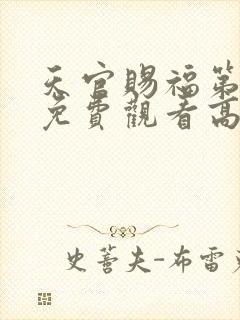 天官賜福第
免費觀看高
史蒂夫-布雷